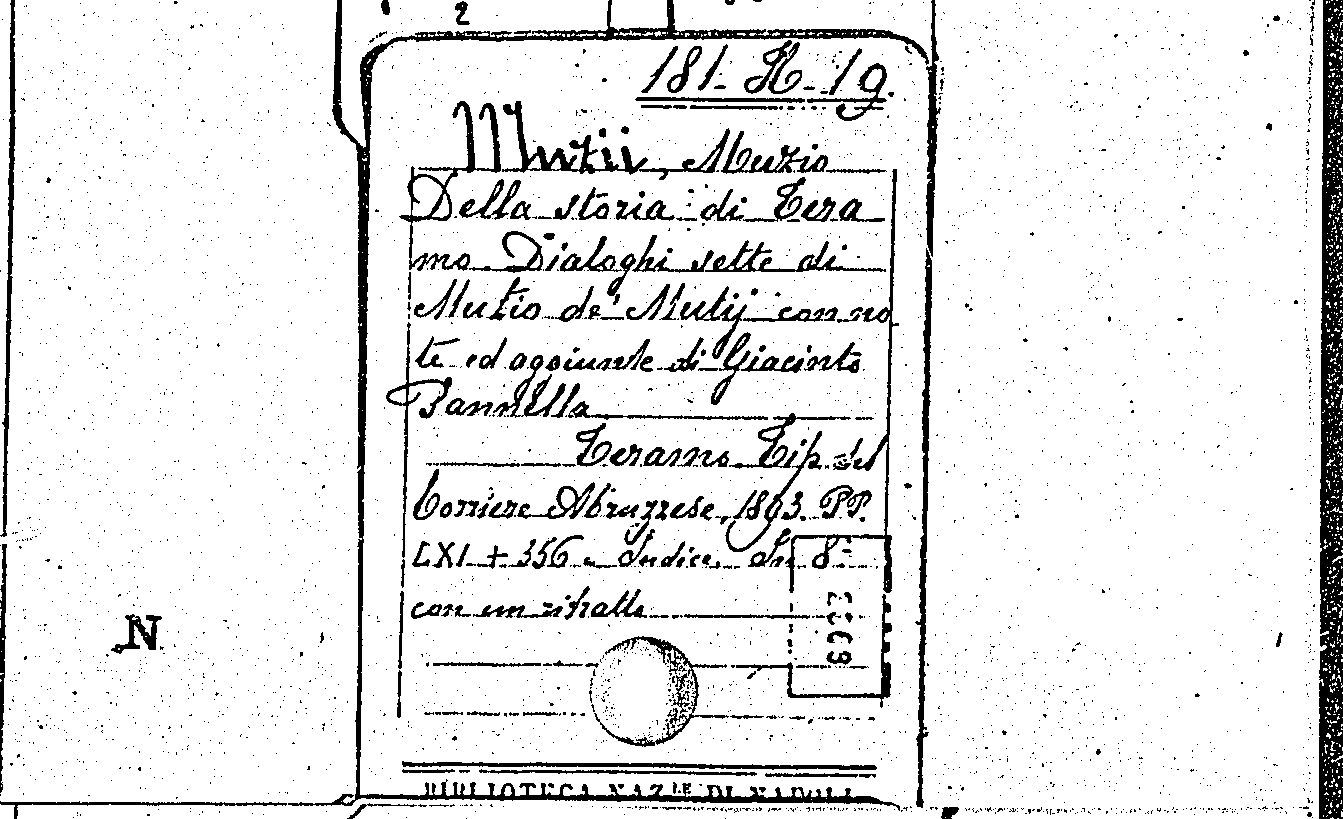 2
181-H-19.
Muzii, Muzio
Della storia di Tera
mo. Dialoghi sette di
Mutio de' Mutij con no
te ed aggiunte di Giacinto
Pannella
Teramo. Tip. del
Corriere Abruzzese, 1893. PP.
LXI + 356 e Indice. In 8º
con un ritratto
N
BIBLIOTECA NAZ.LE DI NAPOLI